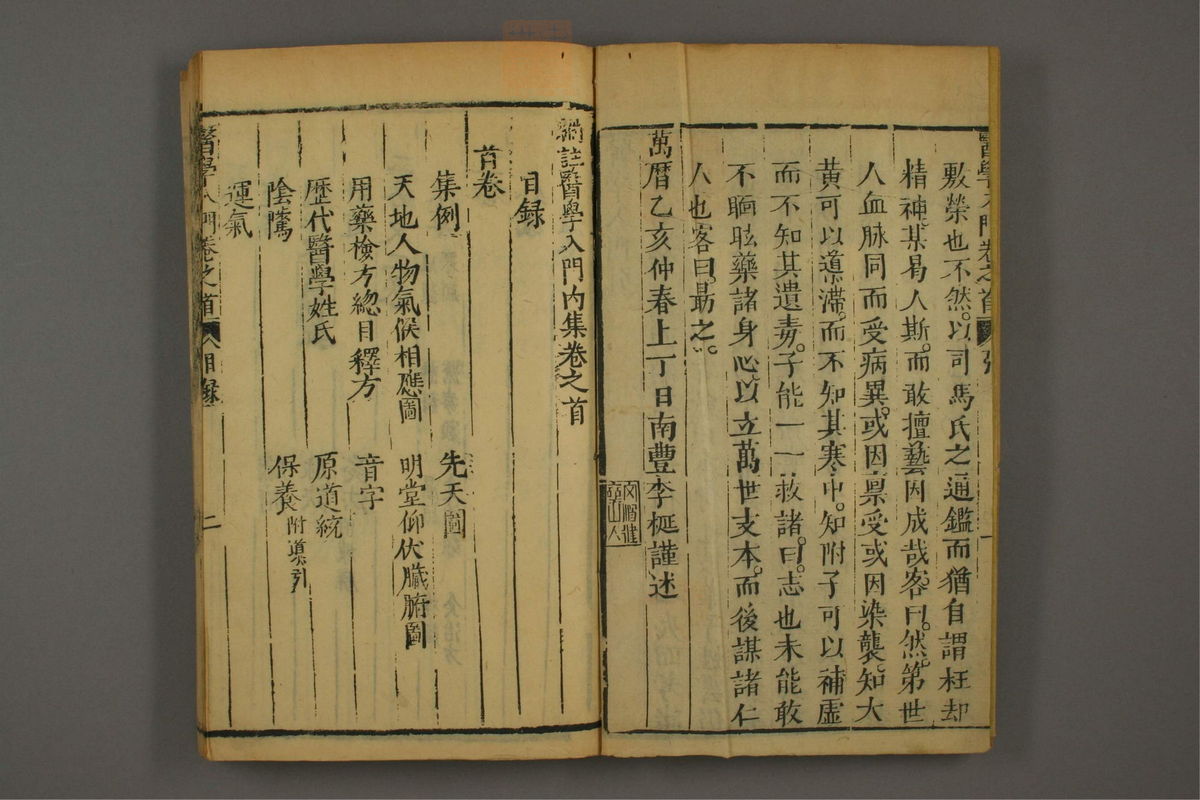 醫學入門卷之首 引 一
敷榮也不然以司馬氏之通鑑而猶自謂枉却
精神某曷人斯而敢擅藝因成哉客曰然第世
人血脉同而受病異或因禀受或因染襲知大
黄可以導滯而不知其寒中知附子可以補虛
而不知其遺毒子能一一救諸曰志也未能敢
不瞑眩藥諸身心以立萬世之本而後謀諸仁
人也客曰勗之
萬曆乙亥仲春上丁日南豐李梴謹述
編註醫學入門內集卷之首
目録
首卷
集例 先天圖
天地人物氣候相應圖 明堂仰伏臟腑圖
用藥檢方總目釋方 音字
歷代醫學姓氏 原道統
陰騭 保養附導引
運氣
醫學入門卷之首 目録 二